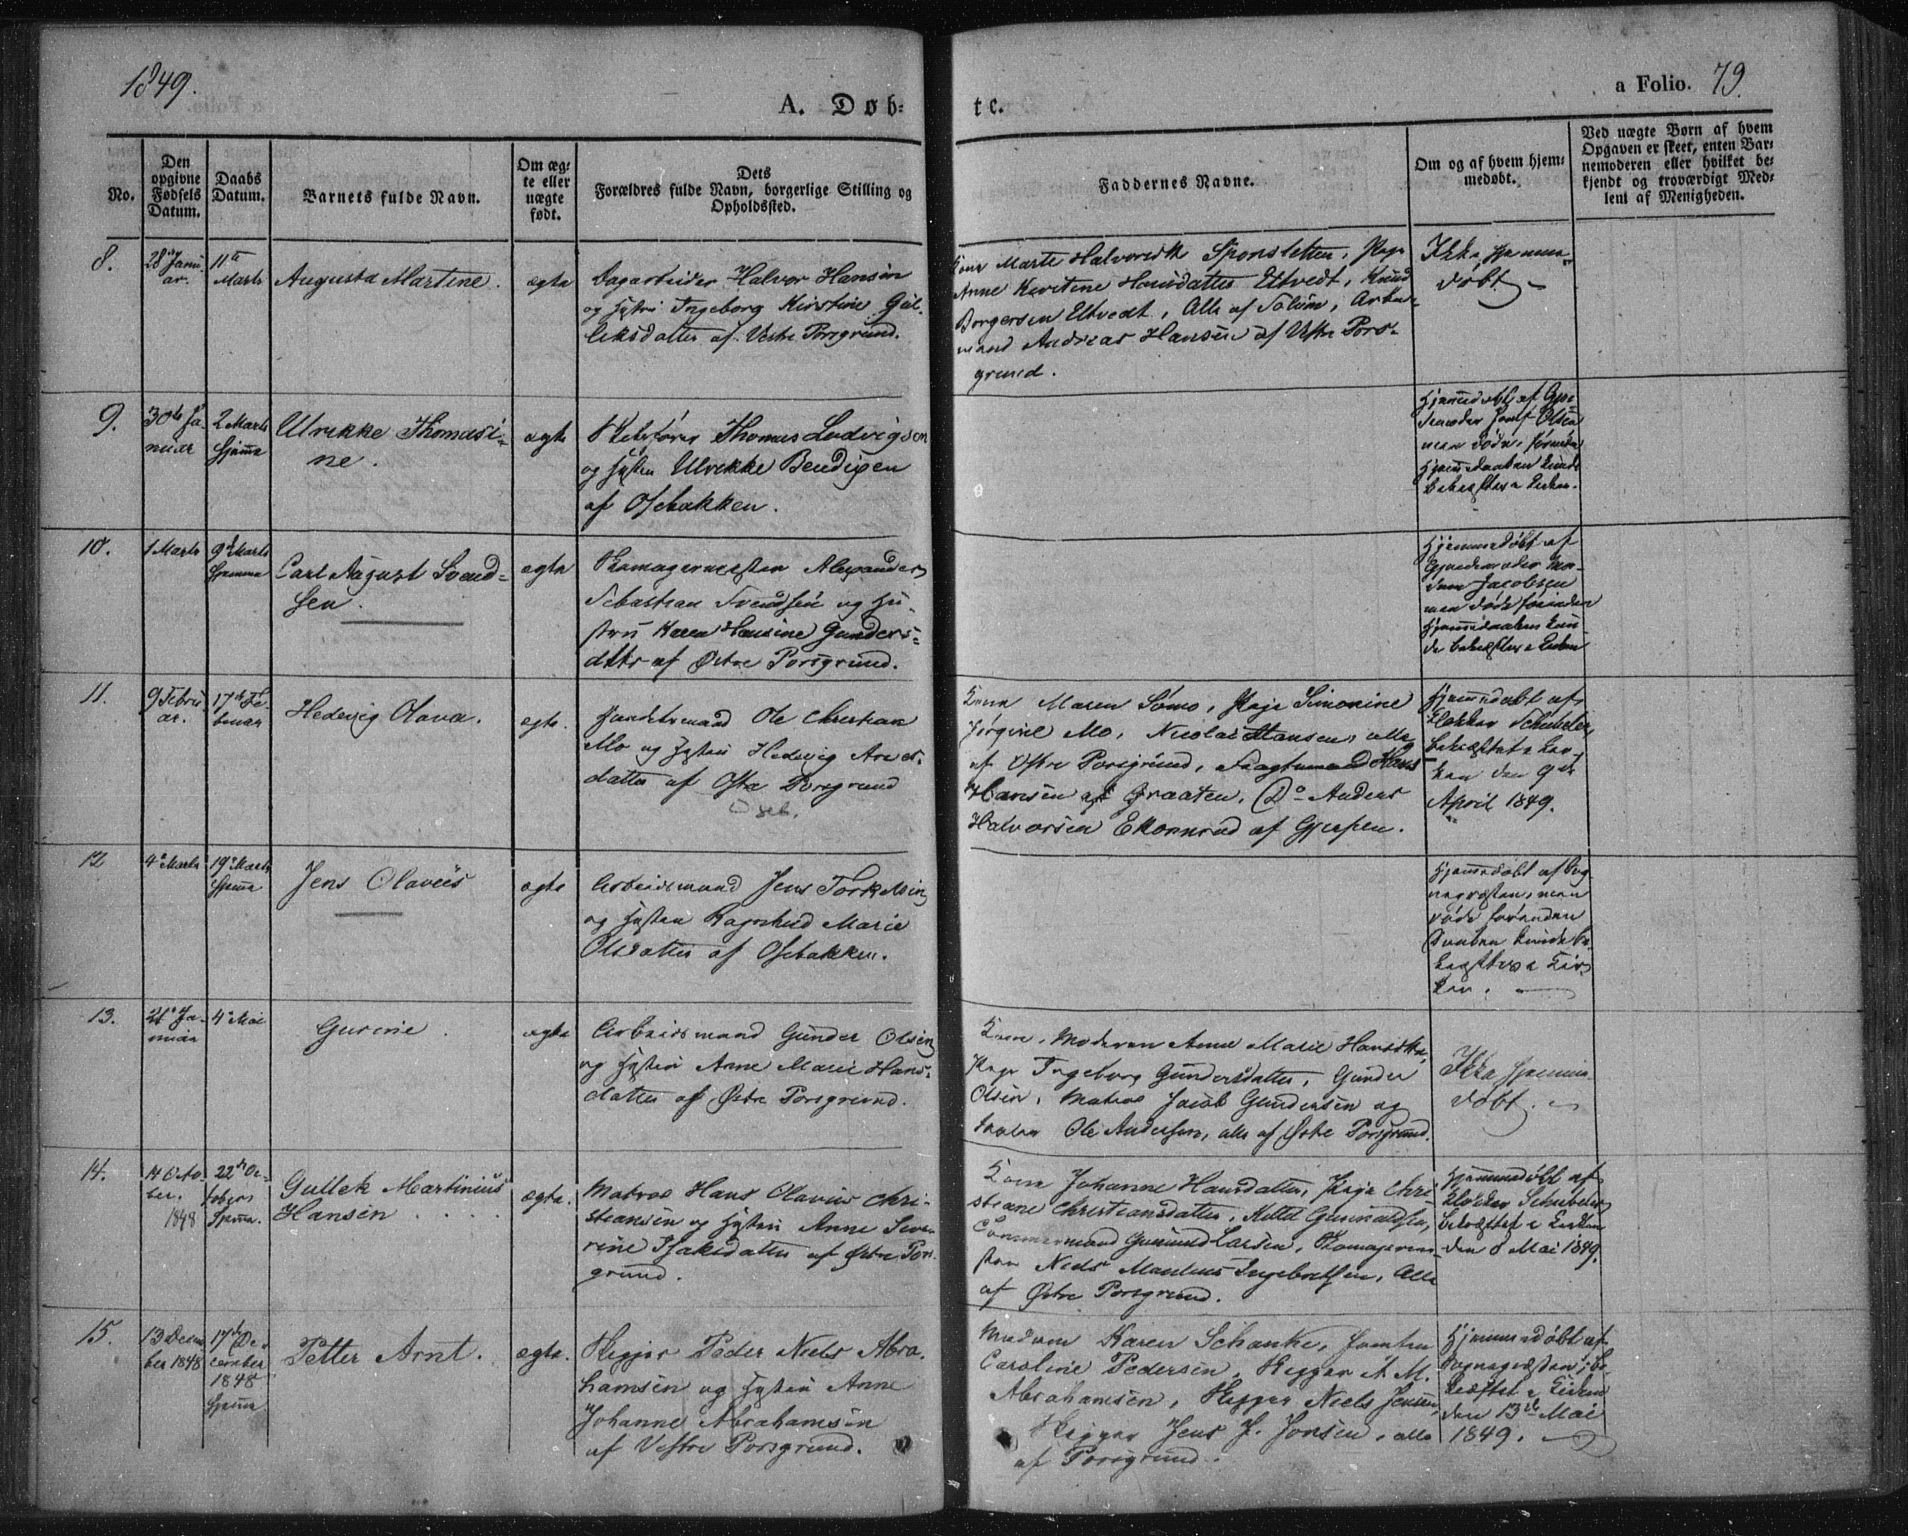 1849.
A. Døb-
te.
a Folio. 79.
No.
Den
opgivne
Fødsels
Datum.
Daabs
Datum.
Barnets fulde Navn.
Om æg-
te eller
uægte
født.
Dets
Forældres fulde Navn, borgerlige Stilling og
Opholdssted.
Faddernes Navne.
Om og af hvem hjem-
medøbt.
Ved uægte Børn af hvem
Opgaven er skeet, enten Bar-
nemoderen eller hvilket be-
kjendt og troværdigt Med-
lem af Menigheden.
8.
28de Janu-
ar.
11te
Marts
Augusta Martine.
ægte
Dagarbeider Halvor Hansen
og Hstru Ingeborg Kirstine Gul-
leksdatter af Vestre Porsgrund.
Kone Marte Halvorsdtr Sponsletten, Pige
Anne Kirstine Hansdatter Eltvedt, Knud
Borgersen Eltvedt, Alle af Solum, Arbe-
mand Andreas Hansen af Vestre Pors-
grund.
Ikke hjemme-
døbt.
9.
30de Ja-
nuar
2 Marts
Hjemme
Ulrikke Thomasi-
ne.
ægte
Skibsfører Thomas Ludvigsen
og Hstru Ulrikke Bendixen
af Osebakken.
Hjemmedøbt af
Olsen
men døde, førend
Hjemmedaaben kunde
bekræftes i Kirken.
10.
1 Marts
9de Marts
Hjemme
Carl August Svend-
sen.
ægte
Skomagermester Alexander
Sebastian Svendsen og Hu-
stru Karen Hansine Gunders-
dttr af Østre Porsgrund.
Hjemmedøbt af
Gjordemoder Ma-
dam Jacobsen
men døde forinden
Hjemmedaaben kun-
de bekræftes i Kirken
11.
9 Febru-
ar.
17de Fe-
bruar
Hedevig Olava.
ægte.
Handelsmand Ole Christian
Mo og Hstru Hedevig Anders-
datter af Østre Porsgrund
Oseb.
Kone Maren Somo, Pige Simonine
Jørgine Mo, Nicolai Hansen, alle
af Østre Porsgrund, Fragtemand Hans
Hansen af Graaten, Do Anders
Halvorsen Ekornrud af Gjerpen.
Hjemmedøbt af
Klokker Schubeler,
bekræftet i Kir-
ken den 9de
April 1849.
12
4de Marts
19de Marts
Hjemme
Jens Olaves
ægte
Arbeidsmand Jens Torkelsen
og Hstru Ragnhild Marie
Olsdatter af Osebakken.
Hjemmedøbt af Sog-
nepræsten, men
døde forinden
Daaben kunde be-
kræftes i Kir-
ken.
13.
21de Ja-
nuar
4de Mai
Gurine.
ægte
Arbeidsmand Gunder Olsen
og Hstru Anne Marie Hans-
datter af Østre Porsgrund.
Kone, Moderen Anne Marie Hansdtr,
Pige Ingeborg Gundersdatter, Gunder
Olsen, Matros Jacob Gundersen og
Ole Andersen, alle af Østre Porsgrund.
Ikke hjemme-
døbt.
14.
14 Octo-
ber.
1848
22de Oc-
tober
Hjemme.
Gullek Martinius
Hansen
ægte.
Matros Hans Olavius Chri-
stiansen og Hstru Anne Seve-
rine Isaksdatter af Østre Pors-
grund.
Kone Johanne Hansdatter, Pige Chri-
stiane Christiansdatter, Kittel Gunvaldsen,
Tømmermand Gunuld Larsen, Skomagerme-
ster Niels Martinus Ingebretsen, Alle
af Østre Porsgrund.
Hjemmedøbt af
Klokker Schubeler
bekræftet i Kirken
den 8 Mai 1849.
15.
13 Decem-
ber 1848
17de De-
cember
1848
Hjemme
Petter Arnt.
ægte.
Skipper Peder Niels Abra-
hamsen og Hstru Anne
Johanne Abrahamsen
af Vestre Porsgrund.
Madam Karen Schanke, Jomfru
Caroline Pedersen, Skipper A. M.
Abrahamsen, Skipper Niels Jensen,
Skipper Jens P. Jonsen, alle
af Porsgrund.
Hjemmedøbt af
Sognepræsten; be-
kræftet i Kirken
den 13de Mai
1849.